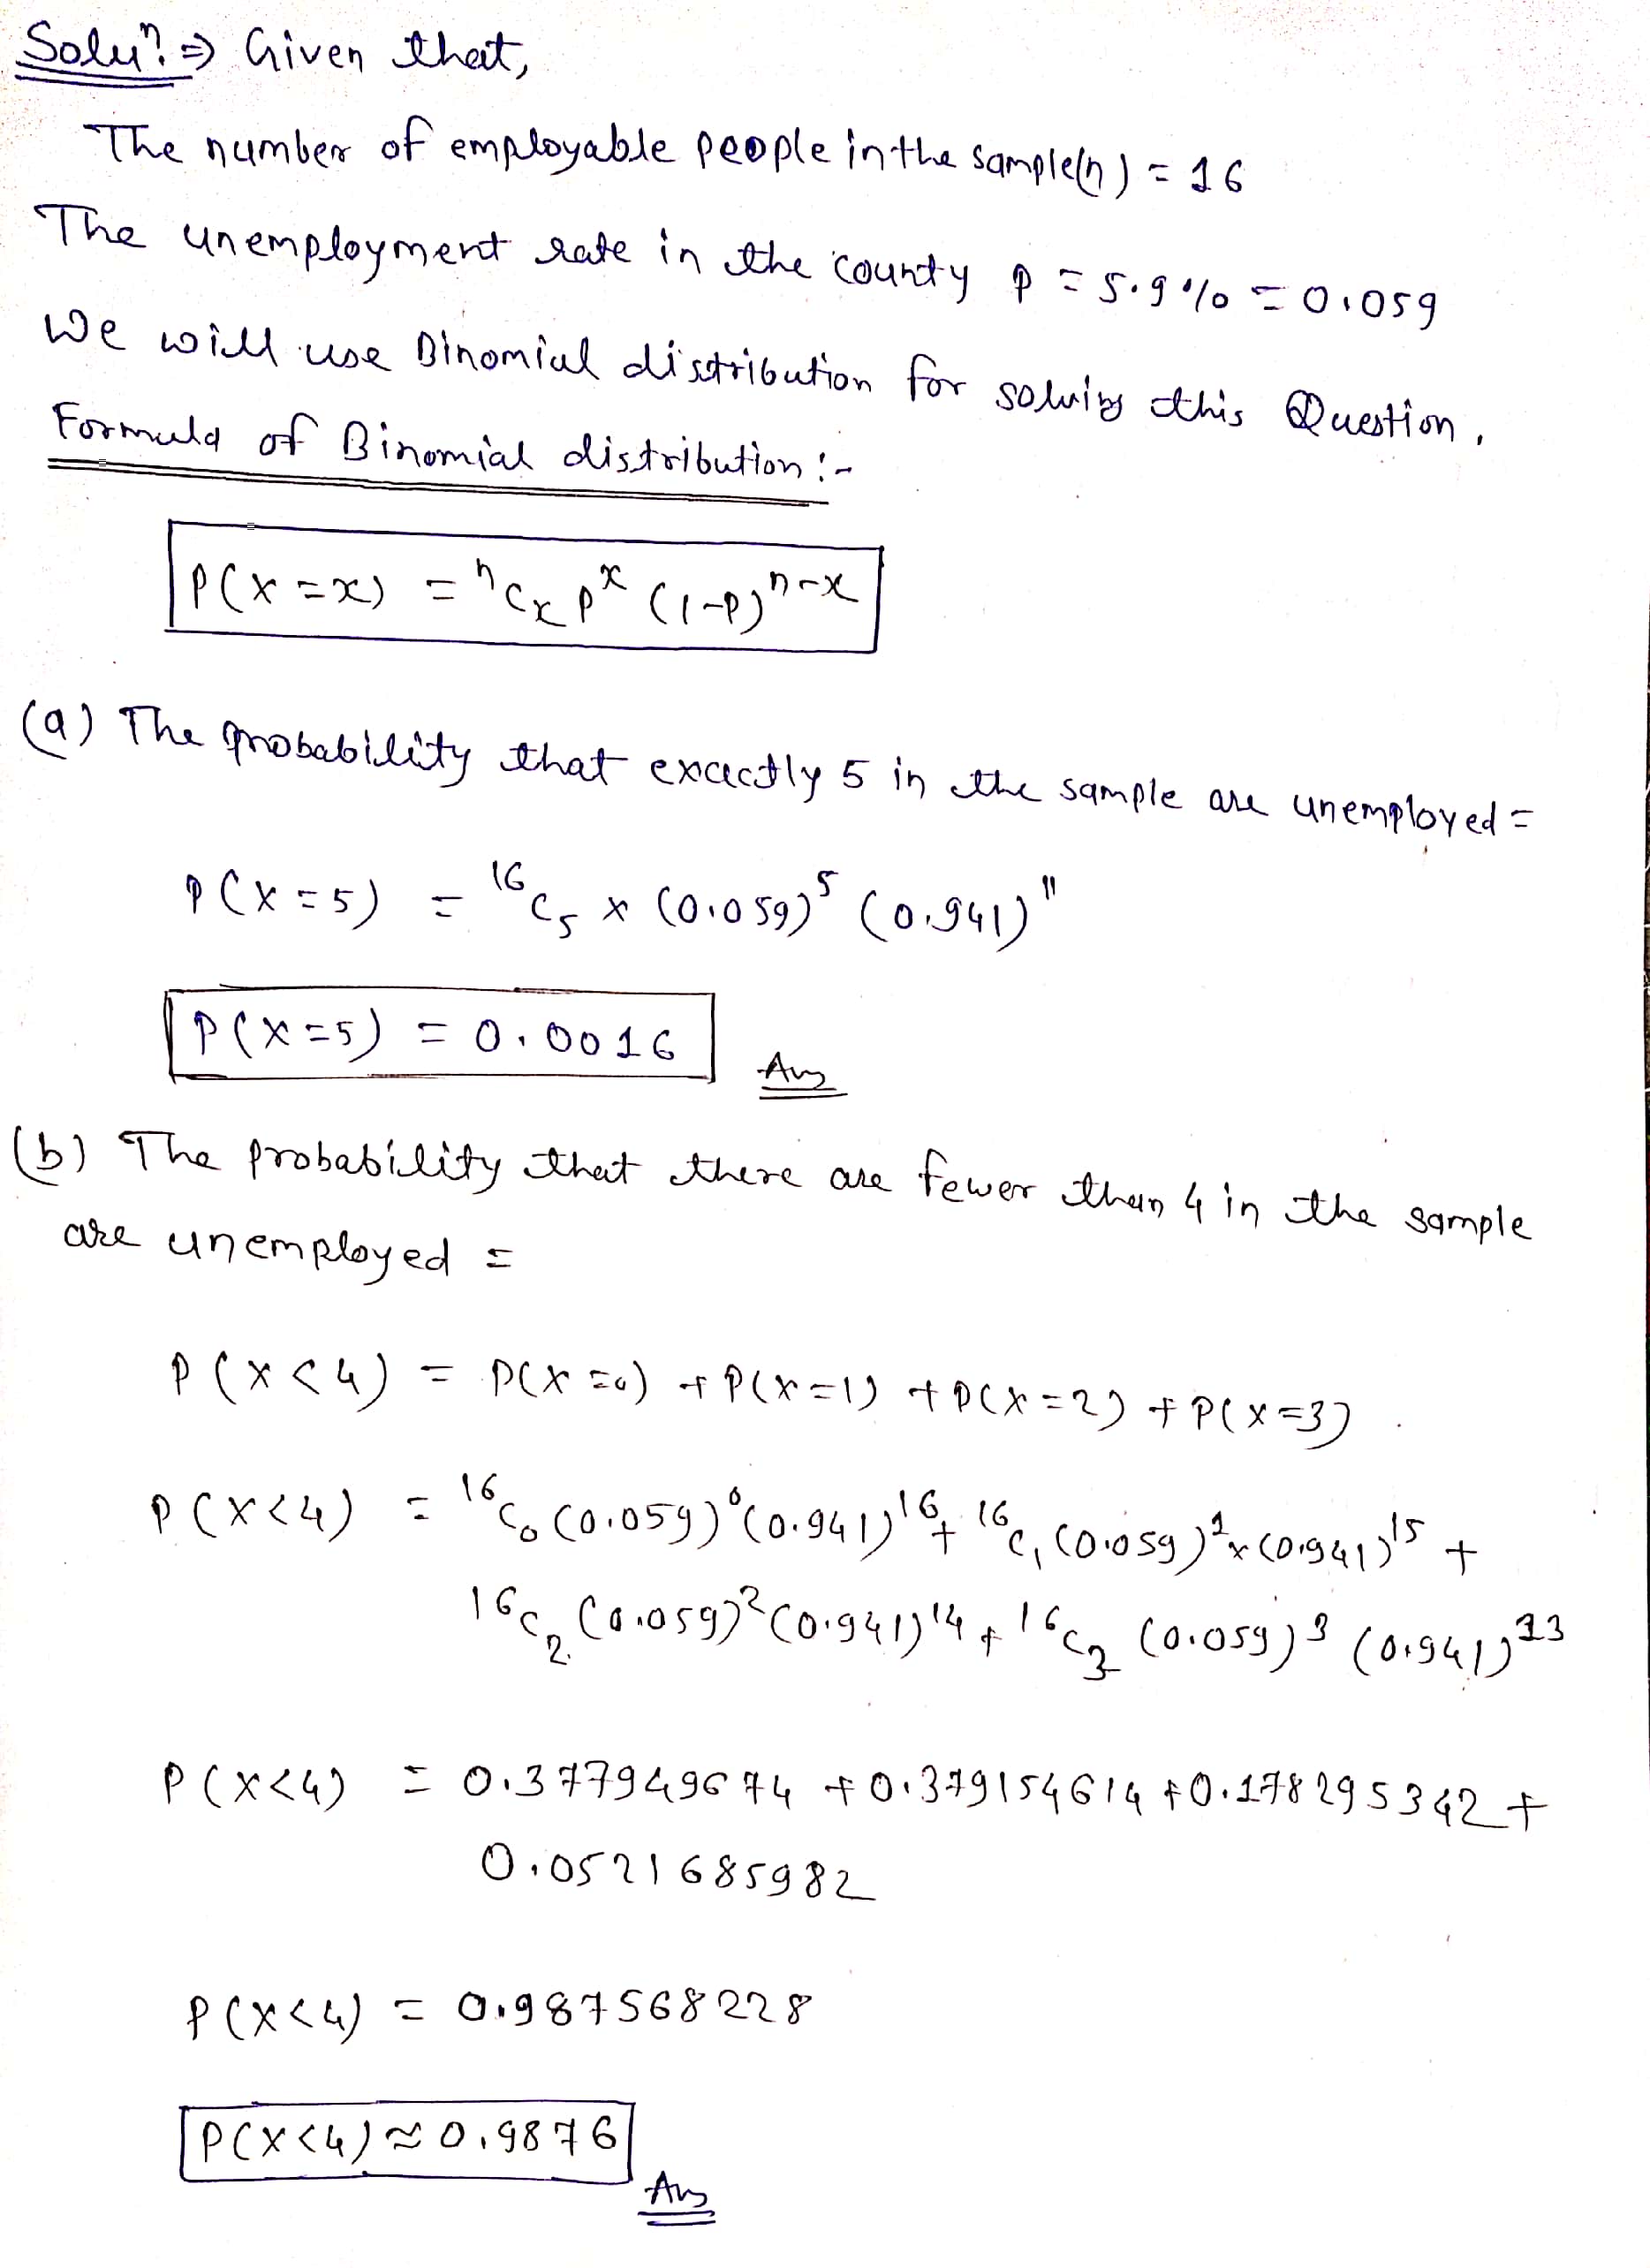 Soluⁿ. ⇒ Given that,
The number of employable people in the sample(n) = 16
The unemployment rate in the county p = 5.9% = 0.059
We will use Binomial distribution for solving this Question.
Formula of Binomial distribution :-
P(X = x) = ⁿCₓ pˣ (1-p)ⁿ⁻ˣ
(a) The probability that exactly 5 in the sample are unemployed =
P(X = 5) = ¹⁶C₅ × (0.059)⁵ (0.941)¹¹
P(X = 5) = 0.0016
Ans
(b) The probability that there are fewer than 4 in the sample
are unemployed =
P(X < 4) = P(X = 0) + P(X = 1) + P(X = 2) + P(X = 3)
P(X < 4) = ¹⁶C₀ (0.059)⁰ (0.941)¹⁶ + ¹⁶C₁ (0.059)¹ × (0.941)¹⁵ +
¹⁶C₂ (0.059)² (0.941)¹⁴ + ¹⁶C₃ (0.059)³ (0.941)¹³
P(X < 4) = 0.377949674 + 0.379154614 + 0.178295342 +
0.0521685982
P(X < 4) = 0.987568228
P(X < 4) ≈ 0.9876
Ans